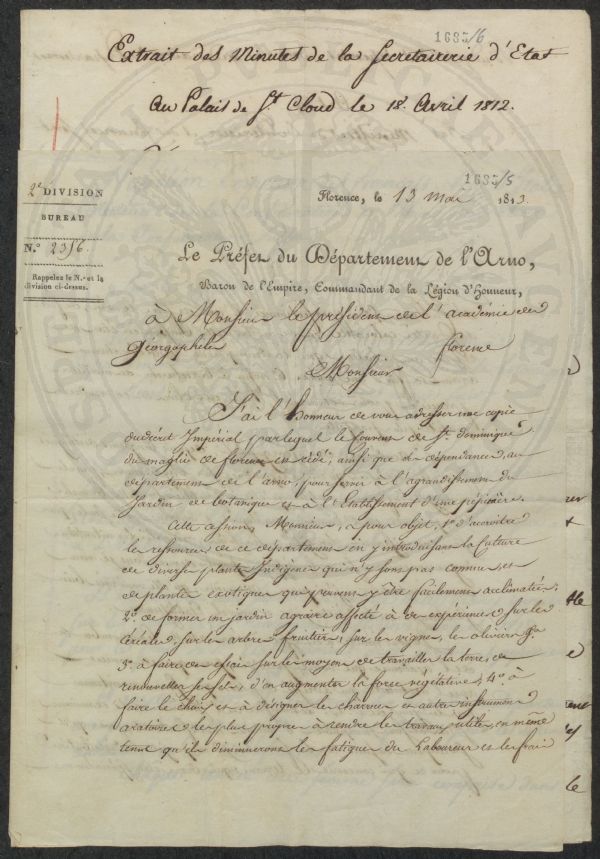 1685/6
Extrait des Minutes de la Secretairerie d'Etat
Au Palais de St. Cloud le 18 Avril 1812.
1685/5
2e DIVISION
BUREAU
N.° 2356.
Rappelez le N.° et la
division ci-dessus.
Florence, le 13 Mai 1813.
Le Préfet du Département de l'Arno,
Baron de l'Empire, Commandant de la Légion d'Honneur,
à Monsieur le président de l'académie des
Géorgophiles florence
Monsieur
J'ai l'honneur de vous adresser une copie
du décret Impérial par lequel le couvent de St. dominique
du maglio de florence est cédé, ainsi que ses dépendances, au
département de l'arno, pour servir à l'agrandissement du
Jardin de botanique et à l'Etablissement d'une pépinière.
Cette cession, Monsieur, a pour objet, 1.° d'accroitre
les ressources de ce département en y introduisant la Culture
de diverses plantes Indigènes qui n'y sont pas connues, et
de plantes exotiques qui peuvent y être facilement acclimatées,
2.° de former un jardin agraire affecté à des expériences sur les
céréales, sur les arbres fruitiers, sur les vignes, les oliviers &a
3.° à faire des essais sur les moyens de travailler la terre, de
renouveller ses sels, d'en augmenter la force végétative; 4.° à
faire le choix et à désigner les charrues et autres instrumens
aratoires les plus propres à rendre les travaux utiles, en même
tems qu'ils diminueront les fatigues du Laboureur et les frais